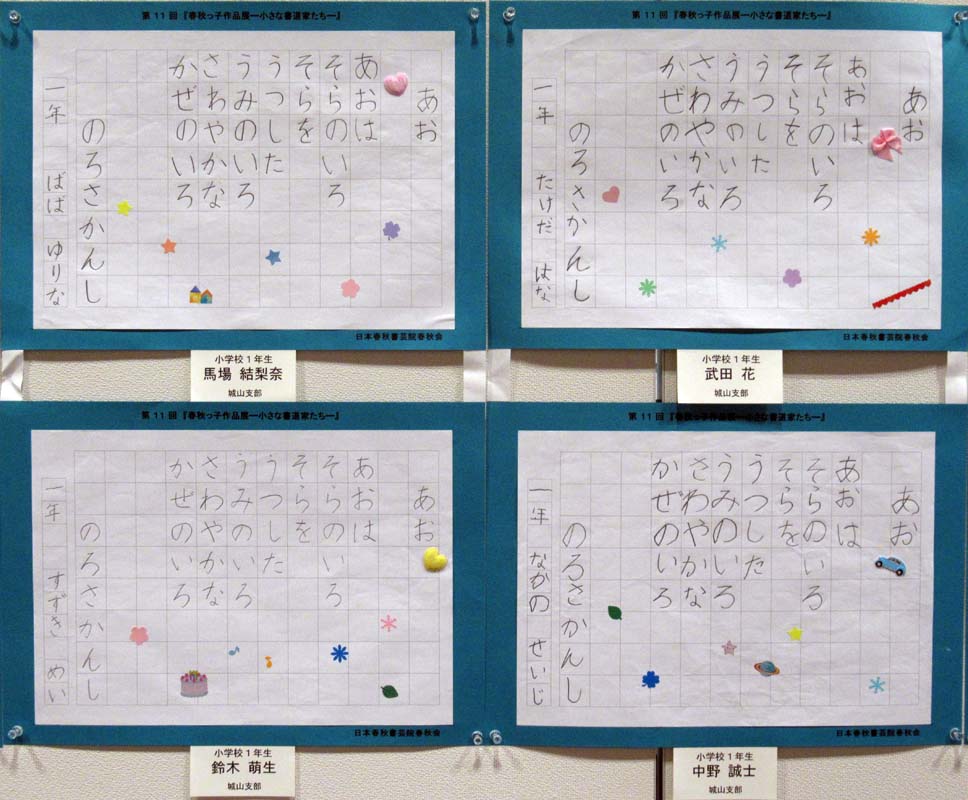 第11回『春秋っ子作品展―小さな書道家たち―』
あお
あおは
そらのいろ
そらを
うつした
うみのいろ
さわやかな
かぜのいろ
のろさかんし
一年 ばば ゆりな
日本春秋書芸院春秋会
小学校1年生
馬場 結梨奈
城山支部
第11回『春秋っ子作品展―小さな書道家たち―』
あお
あおは
そらのいろ
そらを
うつした
うみのいろ
さわやかな
かぜのいろ
のろさかんし
一年 たけだ はな
日本春秋書芸院春秋会
小学校1年生
武田 花
城山支部
第11回『春秋っ子作品展―小さな書道家たち―』
あお
あおは
そらのいろ
そらを
うつした
うみのいろ
さわやかな
かぜのいろ
のろさかんし
一年 すずき めい
日本春秋書芸院春秋会
小学校1年生
鈴木 萌生
城山支部
第11回『春秋っ子作品展―小さな書道家たち―』
あお
あおは
そらのいろ
そらを
うつした
うみのいろ
さわやかな
かぜのいろ
のろさかんし
一年 なかの せいじ
日本春秋書芸院春秋会
小学校1年生
中野 誠士
城山支部